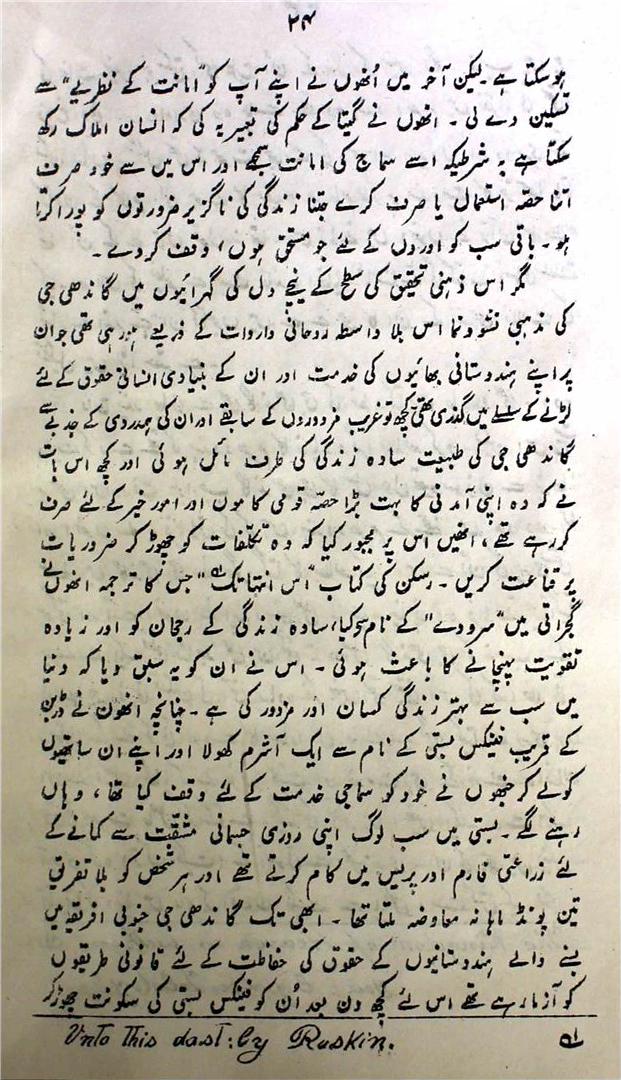 ۲۴
ہوسکتا ہے لیکن آخر میں اُنھوں نے اپنے آپ کو "امانت کے نظریے" سے
تسکین دے لی ۔ انھوں نے گیتا کے حکم کی تعبیر یہ کی کہ انسان املاک رکھ
سکتا ہے بہ شرطیکہ اسے سماج کی امانت سمجھے اور اس میں سے خود صرف
اتنا حصّہ استعمال یا صرف کرے جتنا زندگی کی ناگزیر ضرورتوں کو پورا کرتا
ہو ۔ باقی سب کو اوروں کے لئے جو مستحق ہوں، وقف کردے ۔
مگر اس ذہنی تحقیق کی سطح کے نیچے دل کی گہرائیوں میں گاندھی جی
کی مذہبی نشوونما اس بلا واسطہ روحانی واردات کے ذریعے ہورہی تھی جو ان
پر اپنے ہندوستانی بھائیوں کی خدمت اور ان کے بنیادی انسانی حقوق کے لئے
لڑانے کے سلسلے میں گذری تھی کچھ تو غریب مزدوروں کے سابقے اور ان کی ہمدردی کے جذبے سے
گاندھی جی کی طبیعت سادہ زندگی کی طرف مائل ہوئی اور کچھ اس بات
نے کہ وہ اپنی آمدنی کا بہت بڑا حصّہ قومی کاموں اور امور خیر کے لئے صرف
کررہے تھے، انھیں اس پر مجبور کیا کہ وہ تکلّفات کو چھوڑ کر ضروریات
پر قناعت کریں ۔ رسکن کی کتاب "اس انتہا تک"؂۱ جس کا ترجمہ انھوں نے
گجراتی میں "سرودے" کے نام سے کیا، سادہ زندگی کے رجحان کو اور زیادہ
تقویت پہنچانے کا باعث ہوئی ۔ اس نے ان کو یہ سبق دیا کہ دنیا
میں سب سے بہتر زندگی کسان اور مزدور کی ہے ۔ چنانچہ انھون نے ڈربن
کے قریب فینکس بستی کے نام سے ایک آشرم کھولا اور اپنے ان ساتھیوں
کولے کر جنھوں نے خود کو سماجی خدمت کے لئے وقف کیا تھا، وہاں
رہنے لگے ۔ بستی میں سب لوگ اپنی روزی جسمانی مشقّت سے کمانے کے
لئے زراعتی فارم اور پریس میں کام کرتے تھے اور ہر شخص کو بلا تفریق
تین پونڈ ماہانہ معاوضہ ملتا تھا ۔ ابھی تک گاندھی جی جنوبی افریقہ میں
بسنے والے ہندوستانیوں کے حقوق کی حفاظت کے لئے قانونی طریقوں
کو آزما رہے تھے اس لئے کچھ دن بعد اُن کو فینکس بستی کی سکونت چھوڑ کر
؂۱ Unto This dast: by Ruskin.